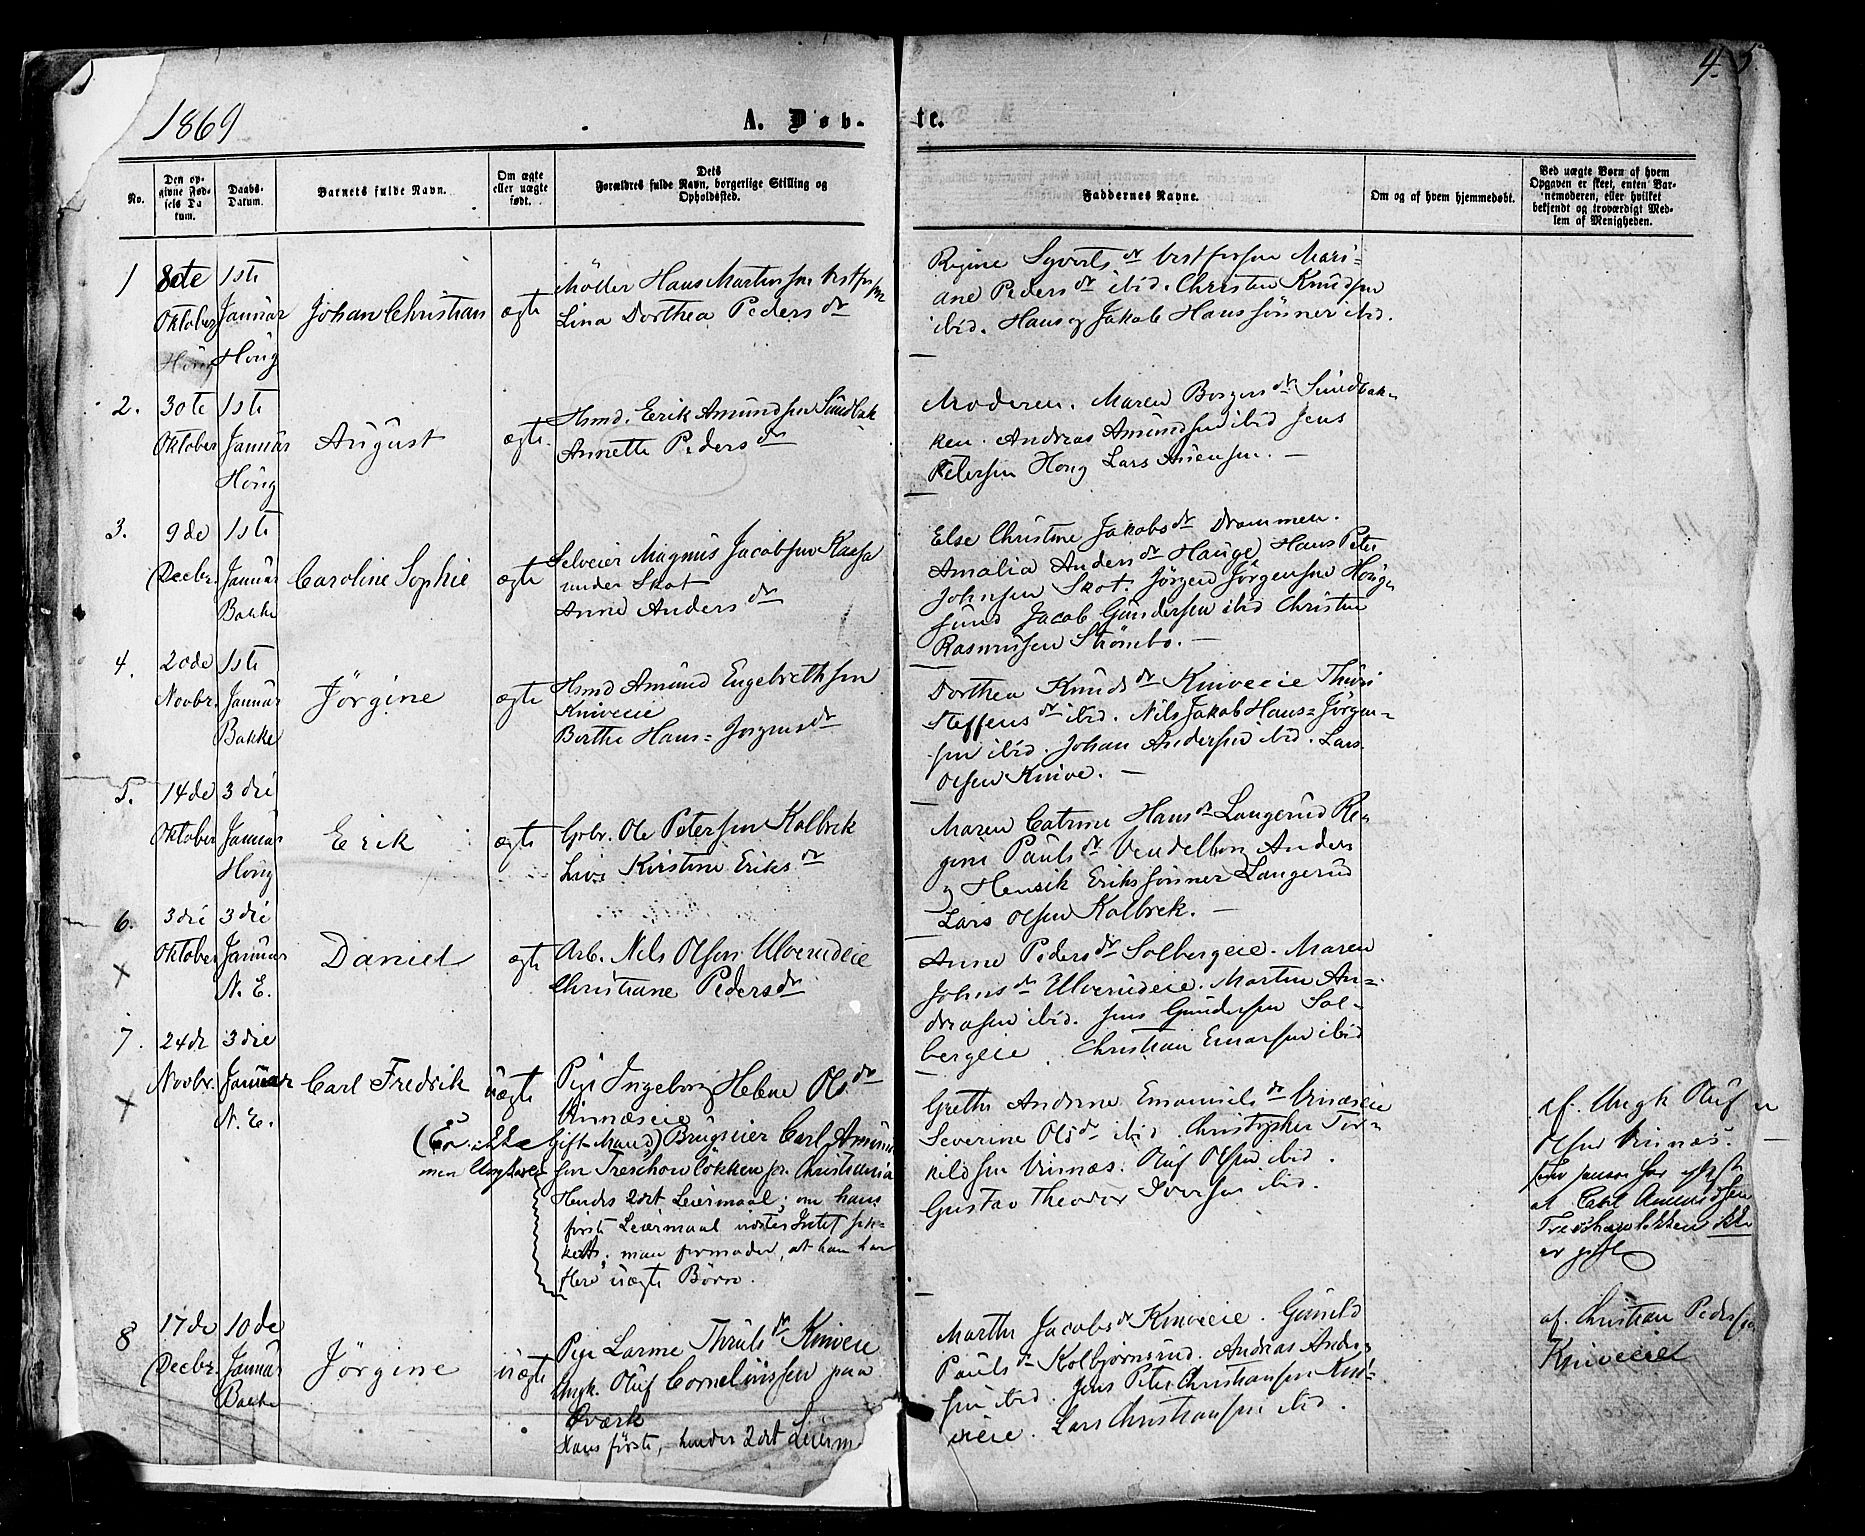 4. 5
1869
A. Døb-
te.
No.
Den op-
givne Fød-
sels Da
tum.
Daabs-
Datum.
Barnets fulde Navn.
Om ægte
eller uægte
født.
Dets
Forældres fulde Navn, borgerlige Stilling og
Opholdssted.
Faddernes Navne.
Om og af hvem hjemmedøbt.
Ved uægte Børn af hvem
Opgaven er skeet, enten Bar-
nemoderen, eller hvilket
bekjendt og troværdigt Med-
lem af Menigheden.
1
8de
Oktober
Houg
1ste
Januar
Houg
Johan Christian
ægte
Møller Hans Martinsen Vestfossen
Lina Dorthea Pedersdr
Regine Syvertsdr Vestfossen Mari-
ane Pedersdr ibid. Christen Knudsen
ibid. Hans og Jakob Hanssønner ibid.
2.
30te
Oktober
1ste
Januar
Houg
August
ægte.
Hsmd. Erik Amundsen Sundbak
Annette Pedersdr
Moderen. Maren Borgersdr Sundbak-
ken. Andreas Amundsen ibid Jens
Petersen Houg Lars Anensen. —
3.
9de
Decbr.
1ste
Januar
Bakke
Caroline Sophie
ægte
Selveier Magnus Jacobsen Kaasa
under Skot
Anne Andersdr
Else Christine Jakobsdr Drammen.
Amalia Andersdr Hauge, Hans Peter
Johnsen Skot. Jørgen Jørgensen Houg-
sund Jacob Gundersen ibid Christen
Rasmussen Strømbo. —
4.
20de
Novbr.
1ste
Januar
Bakke
Jørgine
ægte
Hsmd Amund Engebrethsen
Kniveeie
Berthe Hans= Jorgensdr
Dorthea Knudsdr Kniveeie Thuri
Steffensdr ibid. Nils Jakob Hans= Jørgen-
sen ibid. Johan Andersen ibid. Lars
Olsen Knive. —
5.
14de
Oktober
3die
Januar
Houg
Erik
ægte
Gbr. Ole Petersen Kolbrek
Live Kirstine Eriksdr
Maren Catrine Hansdr Langerud Re-
gine Paulsdr Vendelborg Anders
og Henrik Erikssønner Langerud
Lars Olsen Kolbrek. —
6.
x
3die
Oktober
3die
Januar
N. E.
Daniel
ægte
Arb. Nils Olsen Ulverudeie
Christiane Pedersdr
Anne Pedersdr Solbergeie. Maren
Johnsdr Ulverudeie. Martin An-
dreasen ibid. Jens Gundersen Sol-
bergeie. Christian Einarsen ibid
7.
x
24de
Novbr.
3die
Januar
N. E.
Carl Fredrik
uægte
Pige Ingeborg Helene Olsdr
Vinnæseie
(Er ikke
gift Mand) Brugseier Carl Amund
men Ungkarl
sen Treschow Løkken pr. Christiania
Hendes 2det Leiermaal; om hans
første Leiermaal vidstes Intet sik-
kert; man formoder, at han har
flere uægte Børn.
Grethe Andrine Emanuelsdr Vinæseie
Severine Olsdr ibid Christopher Tor-
kildsen Vinnæs. Oluf Olsen ibid.
Gustav Theodor Iversen ibid.
af. Ungk Oluf
Olsen Vinnæs. —
at Carl Amundsen
Treschowløkken ikke
er gift
8
17de
Decbr.
10de
Januar
Bakke
Jørgine
uægte
Pige Larine Thrulsdr Kniveeie
Ungk. Oluf Corneliussen paa
Hans første, hendes 2det Leierm
Marthe Jacobsdr Kniveeie. Gunild
Paulsdr Kolbjørnsrud. Andreas Andre-
sen ibid. Jens Peter Christiansen Kni-
veeie. Lars Christiansen ibid.
af. Christian Pedersen
Kniveeiet